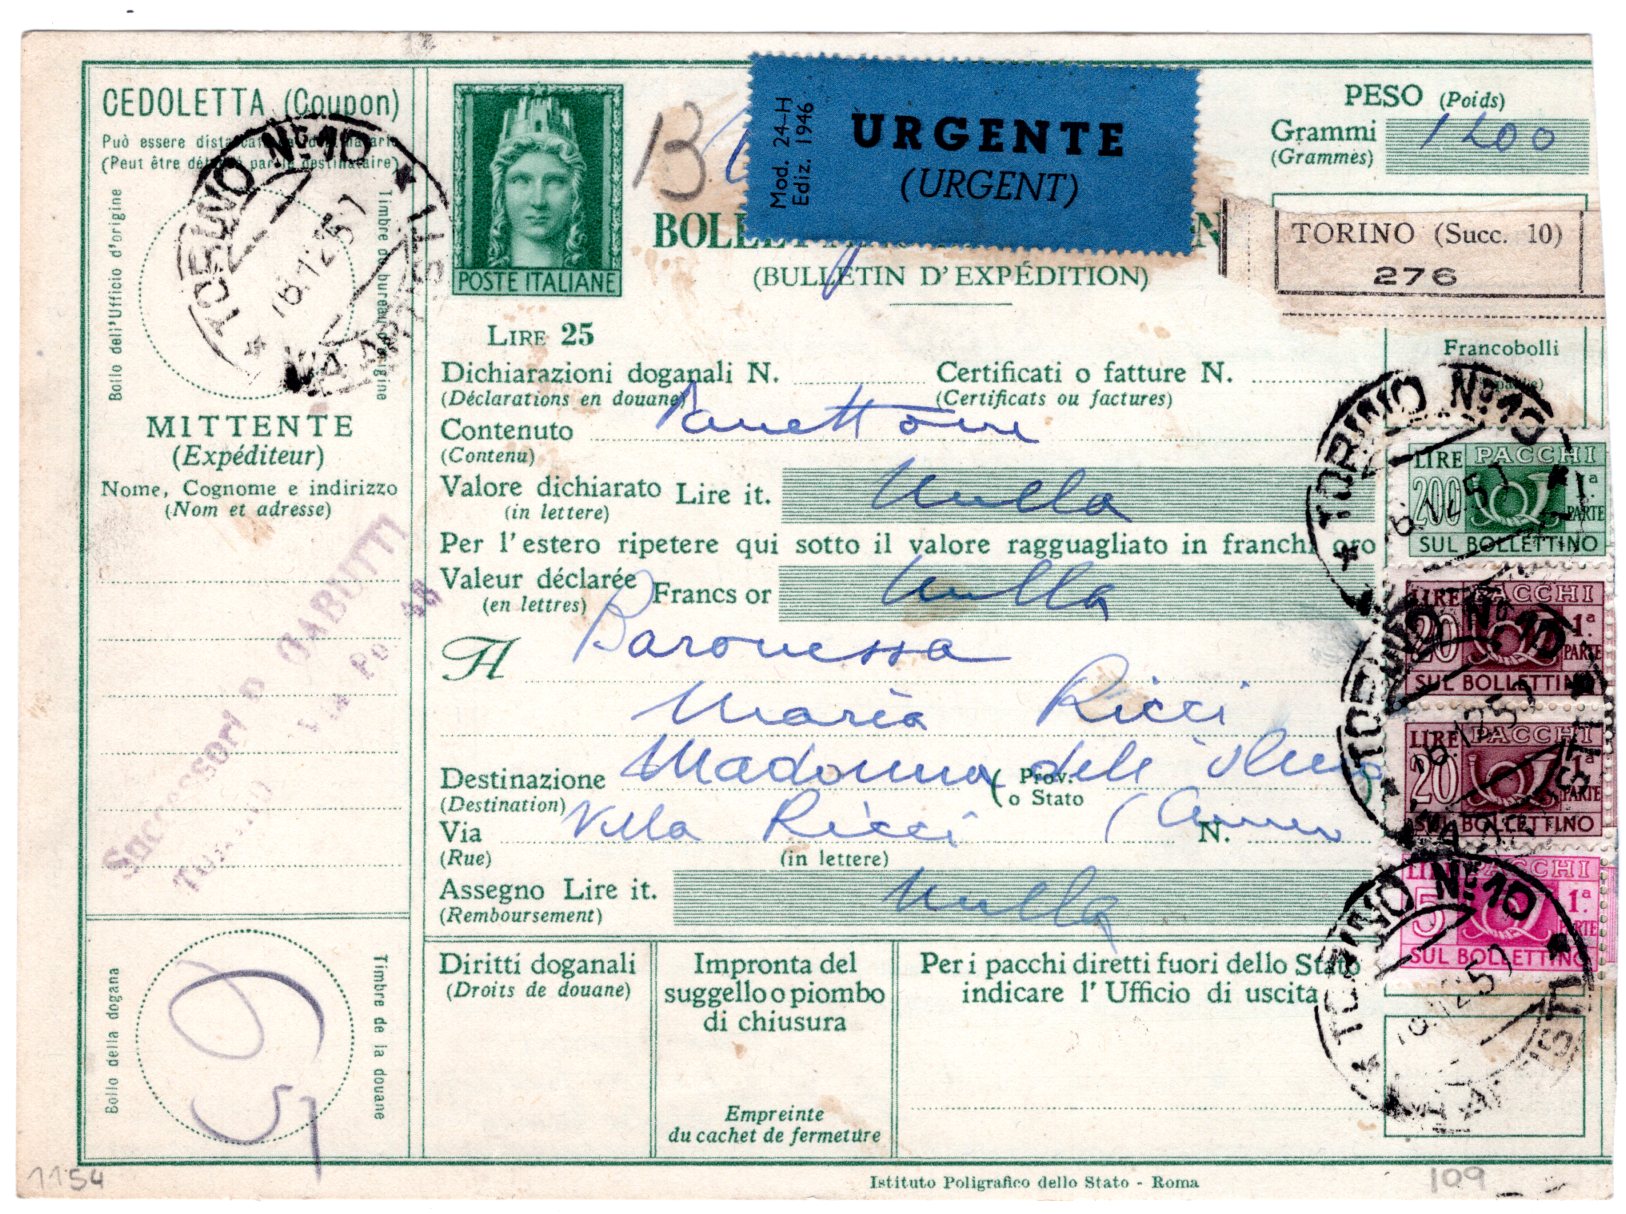 CEDOLETTA (Coupon)
Può essere distaccata dal destinatario
(Peut être détaché par le destinataire)
Bollo dell'Ufficio d'origine
Timbre du bureau d'origine
TORINO Nº 10
VIA ARTISTI
MITTENTE
(Expéditeur)
Nome, Cognome e indirizzo
(Nom et adresse)
Successori D. GABUTTI
TORINO Via Po 48
Bollo della dogana
Timbre de la douane
POSTE ITALIANE
LIRE 25
B
URGENTE
(URGENT)
Mod. 24-H
Ediz. 1946
(BULLETIN D'EXPÉDITION)
PESO (Poids)
Grammi 1200
(Grammes)
TORINO (Succ. 10)
276
Francobolli
Dichiarazioni doganali N. Certificati o fatture N.
(Déclarations en douane) (Certificats ou factures)
Contenuto Panettone
(Contenu)
Valore dichiarato Lire it. Nulla
(in lettere)
Per l'estero ripetere qui sotto il valore ragguagliato in franchi oro
Valeur déclarée Francs or Nulla
(en lettres)
A Baronessa
Maria Ricci
Destinazione Madonna dell'Olmo Prov.
(Destination) o Stato
Via Villa Ricci (Cuneo N.
(Rue) (in lettere)
Assegno Lire it. Nulla
(Remboursement)
Diritti doganali
(Droits de douane)
Impronta del
suggello o piombo
di chiusura
Empreinte
du cachet de fermeture
Per i pacchi diretti fuori dello Stato
indicare l'Ufficio di uscita
LIRE PACCHI
200 1ª
PARTE
SUL BOLLETTINO
LIRE PACCHI
20 1ª
PARTE
SUL BOLLETTINO
LIRE PACCHI
20 1ª
PARTE
SUL BOLLETTINO
LIRE PACCHI
5 1ª
PARTE
SUL BOLLETTINO
TORINO Nº 10
TORINO Nº 10
TORINO Nº 10
VIA ARTISTI
Istituto Poligrafico dello Stato - Roma
1154
109